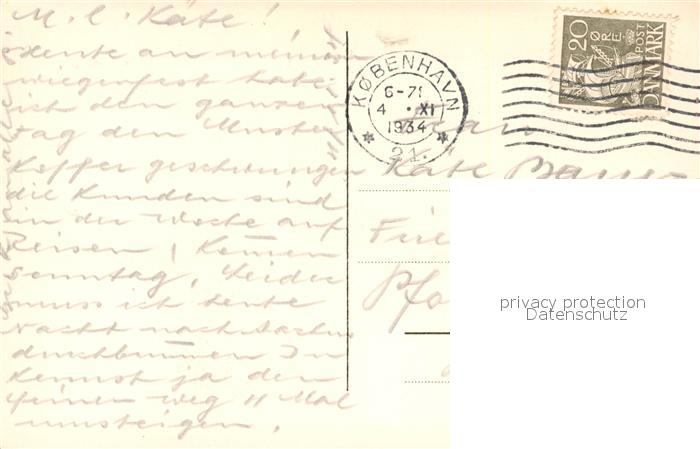 M. l. Käte!
Heute an meinem
Wiegenfest habe
ich den ganzen
tag den Muster
Koffer geschwungen
die Kunden sind
in der Woche auf
Reisen,
Sonntag, Leider
muss ich heute
Nacht nach Aarhus
durchbummeln Du
kennst ja den
11 Mal
umsteigen.
KØBENHAVN
6-7
4 · XI
1934
21.
20
ØRE
POST
DANMARK
Frau
Käte
privacy protection
Datenschutz